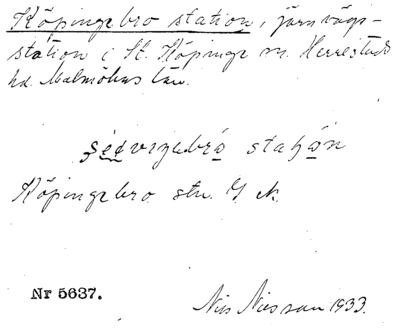 Köpingebro station, järnvägs-
station i St. Köpinge sn. Herrestads
hd. Malmöhus län.
stn
Köpingebro stn. G K.
Nr 5637.
Nils Nilsson 1933.